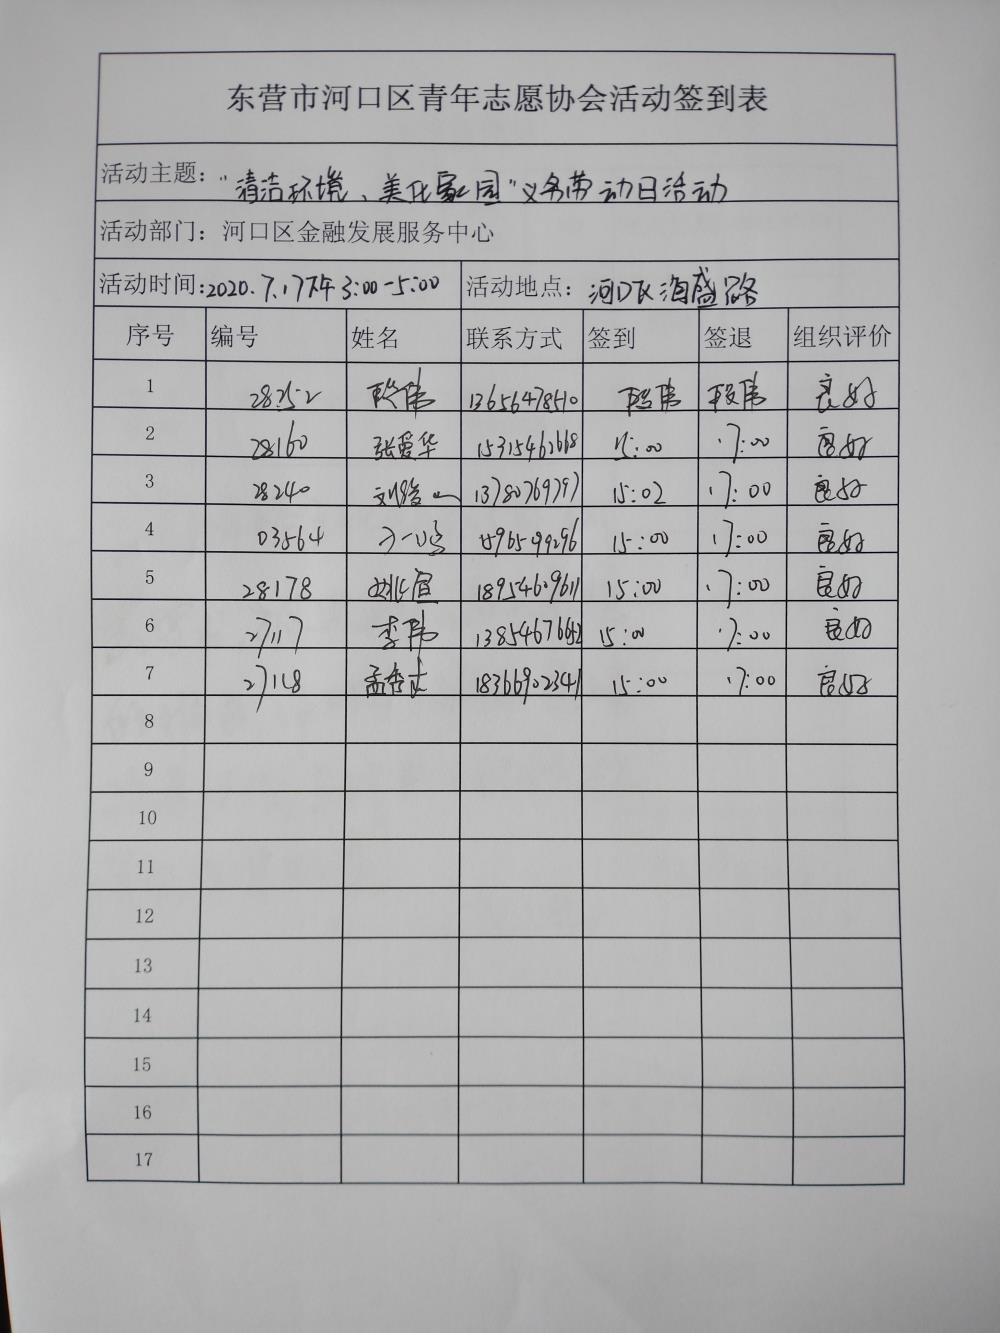 东营市河口区青年志愿协会活动签到表
活动主题：“清洁环境、美化家园”义务劳动日活动
活动部门：河口区金融发展服务中心
活动时间:2020.7.17下午3:00-5:00 活动地点：河口区海盛路
序号 编号 姓名 联系方式 签到 签退 组织评价
1 28252 良好
2 28160 张爱华 17:00 良好
3 28240 15:02 17:00 良好
4 03564 15:00 17:00 良好
5 28178 18954609611 15:00 17:00 良好
6 27117 李伟 15:00 17:00 良好
7 27118 18366902341 15:00 17:00 良好
8
9
10
11
12
13
14
15
16
17